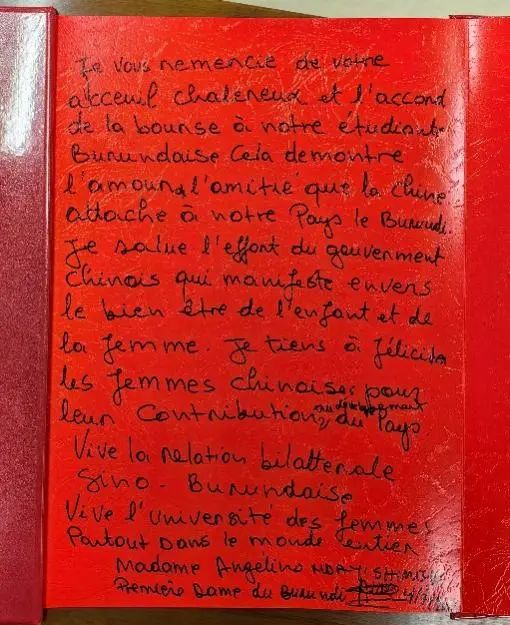 Je vous remercie de votre
accueil chaleureux et l'accord
de la bourse à notre étudiante
Burundaise Cela demontre
l'amour, l'amitié que la Chine
attache à notre Pays le Burundi.
Je salue l'effort du gouvernment
Chinois qui manifeste envers
le bien être de l'enfant et de
la femme. Je tiens à féliciter
les femmes chinoises pour
leur Contribution, au développement du Pays.
Vive la relation bilatterale
Sino-Burundaise
Vive l'université des femmes
Partout Dans le monde entier
Madame Angeline NDAYISHIMIYE
Première Dame du Burundi